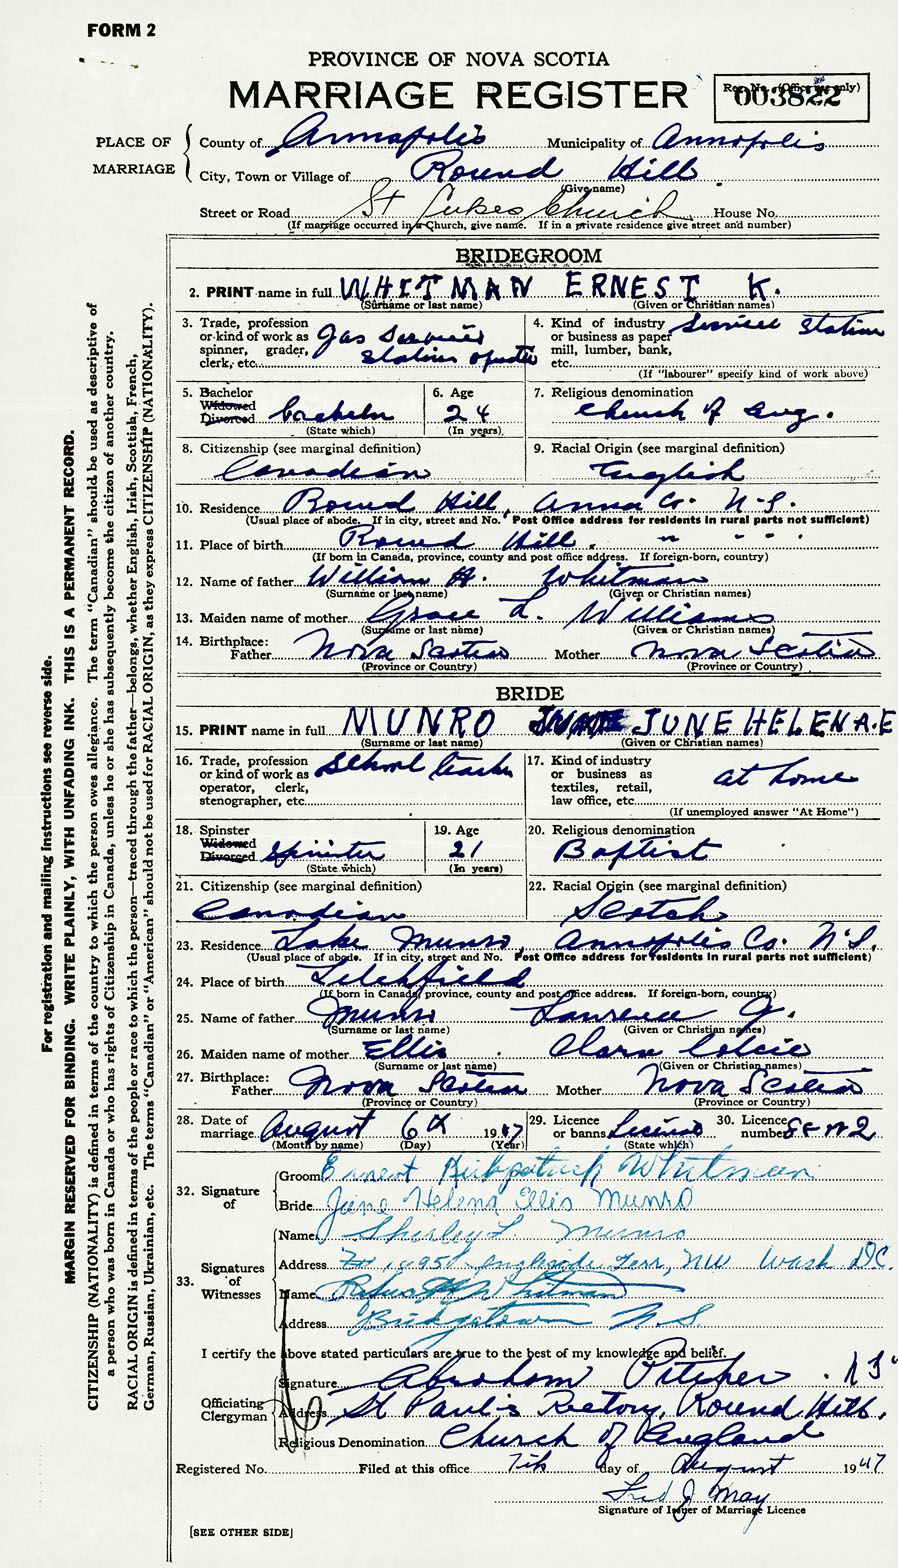 FORM 2
PROVINCE OF NOVA SCOTIA
MARRIAGE REGISTER
Reg. No. (Office use only)
003822
PLACE OF MARRIAGE
County of Annapolis Municipality of Annapolis
City, Town or Village of Round Hill
(Give name)
Street or Road St Lukes Church House No.
(If marriage occurred in a Church, give name. If in a private residence give street and number)
BRIDEGROOM
2. PRINT name in full WHITMAN ERNEST K.
(Surname or last name) (Given or Christian names)
3. Trade, profession or kind of work as spinner, grader, clerk, etc. Gas Service Station
4. Kind of industry or business as paper mill, lumber, bank, etc. Service Station
(If "labourer" specify kind of work above)
5. Bachelor Widowed Divorced bachelor
(State which)
6. Age 24
(In years)
7. Religious denomination Church of Eng.
8. Citizenship (see marginal definition) Canadian
9. Racial Origin (see marginal definition) English
10. Residence Round Hill, Anna Co. N.S.
(Usual place of abode. If in city, street and No. Post Office address for residents in rural parts not sufficient)
11. Place of birth Round Hill. " " " "
(If born in Canada, province, county and post office address. If foreign-born, country)
12. Name of father William H. Whitman
(Surname or last name) (Given or Christian names)
13. Maiden name of mother Grace L. Williams
(Surname or last name) (Given or Christian names)
14. Birthplace: Father Nova Scotia Mother Nova Scotia
(Province or Country) (Province or Country)
BRIDE
15. PRINT name in full MUNRO JUNE HELENA.E
(Surname or last name) (Given or Christian names)
16. Trade, profession or kind of work as operator, clerk, stenographer, etc. School teacher
17. Kind of industry or business as textiles, retail, law office, etc. at home
(If unemployed answer "At Home")
18. Spinster Widowed Divorced Spinster
(State which)
19. Age 21
(In years)
20. Religious denomination Baptist
21. Citizenship (see marginal definition) Canadian
22. Racial Origin (see marginal definition) Scotch
23. Residence Lake Munro, Annapolis Co. N.S.
(Usual place of abode. If in city, street and No. Post Office address for residents in rural parts not sufficient)
24. Place of birth Litchfield
(If born in Canada, province, county and post office address. If foreign-born, country)
25. Name of father Munro Lawrence G.
(Surname or last name) (Given or Christian names)
26. Maiden name of mother Ellis Clara
(Surname or last name) (Given or Christian names)
27. Birthplace: Father Nova Scotia Mother Nova Scotia
(Province or Country) (Province or Country)
28. Date of marriage August 6th 1947
(Month by name) (Day) (Year)
29. Licence or banns License
(State which)
30. Licence number
32. Signature of
Groom Ernest Kirkpatrick Whitman
Bride June Helena Ellis Munro
33. Signatures of Witnesses
Name Shirley L. Munro
Address Terr, NW Wash D.C.
Name Rufus Whitman
Address Bridgetown N.S.
I certify the above stated particulars are true to the best of my knowledge and belief.
Officiating Clergyman
Signature Abraham Pitcher
Address St Paul's Rectory, Round Hill.
Religious Denomination Church of England
Registered No. Filed at this office 7th day of August 1947
Fred J May
Signature of Issuer of Marriage Licence
[SEE OTHER SIDE]
For registration and mailing instructions see reverse side.
MARGIN RESERVED FOR BINDING. WRITE PLAINLY, WITH UNFADING INK. THIS IS A PERMANENT RECORD.
CITIZENSHIP (NATIONALITY) is defined in terms of the country to which the person owes allegiance. The term "Canadian" should be used as descriptive of
a person who was born in Canada or who has rights of Citizenship in Canada, unless he or she has subsequently become the citizen of another country.
RACIAL ORIGIN is defined in terms of the people or race to which the person—traced through the father—belongs, whether English, Irish, Scottish, French,
German, Russian, Ukrainian, etc. The terms "Canadian" or "American" should not be used for RACIAL ORIGIN, as they express CITIZENSHIP (NATIONALITY).